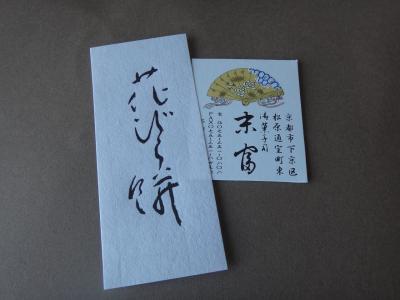 花びら餅
京都市下京区
松原通室町東
御菓子司
末富